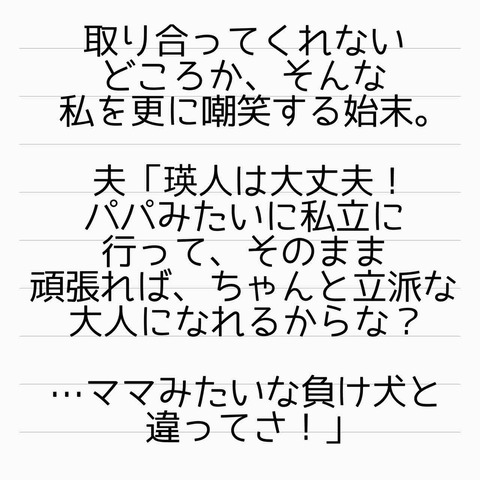 取り合ってくれない
どころか、そんな
私を更に嘲笑する始末。
夫「瑛人は大丈夫！
パパみたいに私立に
行って、そのまま
頑張れば、ちゃんと立派な
大人になれるからな？
…ママみたいな負け犬と
違ってさ！」